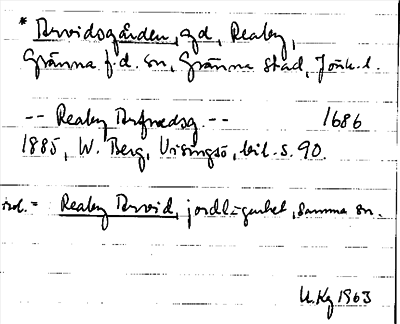 * Arvidsgården, gd, Reaby,
Gränna f.d. sn, Gränna stad, Jönk. l.
-- Reaby Arfwedsg. -- 1686
1885, W. Berg, Visingsö, bil. s. 90.
= Reaby Arvid, jordlägenhet, samma sn.
U. Kg 1963